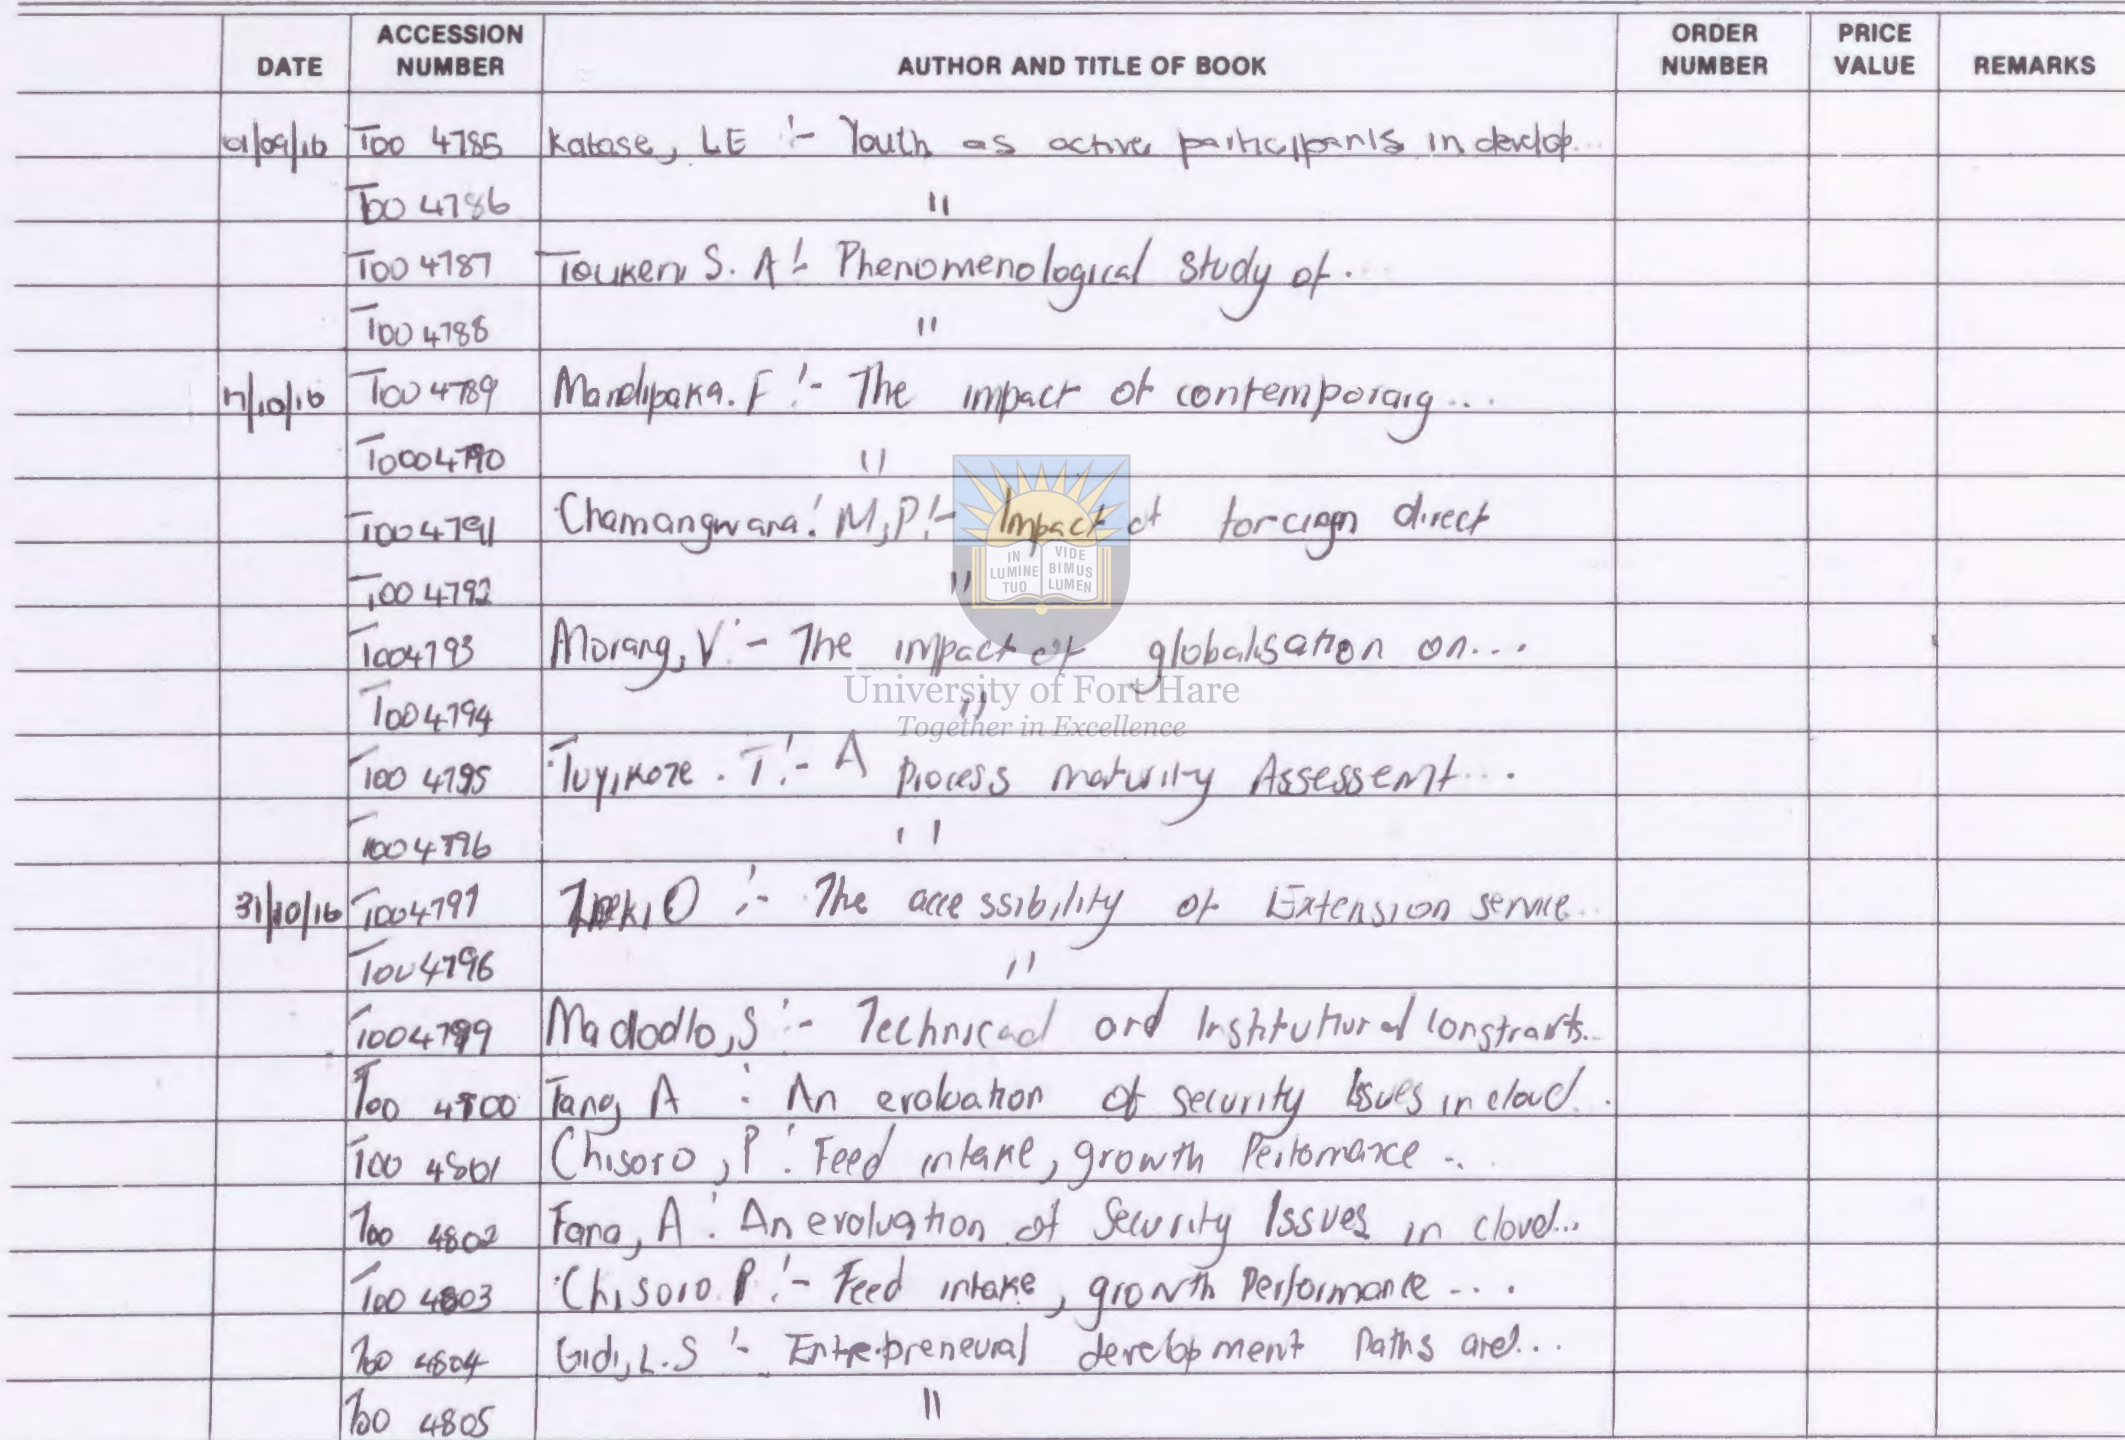 DATE ACCESSION NUMBER AUTHOR AND TITLE OF BOOK ORDER NUMBER PRICE VALUE REMARKS
01/09/16 T00 4785 Katase, LE :- Youth as active participants in develop...
T00 4786 "
T00 4787 Touken, S. A :- Phenomenological study of...
T00 4788 "
17/10/16 T00 4789 Mandipaka. F :- The impact of contemporary...
T0004790 "
T004791 Chamangwana: M,P :- Impact of foreign direct
T00 4792 "
T004793 Morang, V :- The impact of globalisation on...
T004794 "
T00 4795 Tuyikoze . T :- A process maturity Assessemt...
T004796 "
31/10/16 T004797 O :- The accessibility of Extension service...
T004796 "
T004799 Madodlo, S :- Technical and Institutional constraints...
T00 4800 Fang A : An evaluation of security Issues in cloud...
T00 4801 Chisoro, P : Feed intake, growth Performance...
T00 4802 Fang, A : An evaluation of Security Issues in cloud...
T00 4803 Chisoro. P :- Feed intake, growth Performance...
T00 4804 Gidi, L.S :- Entrepreneural development Paths and...
T00 4805 "
IN LUMINE TUO VIDE BIMUS LUMEN
University of Fort Hare
Together in Excellence